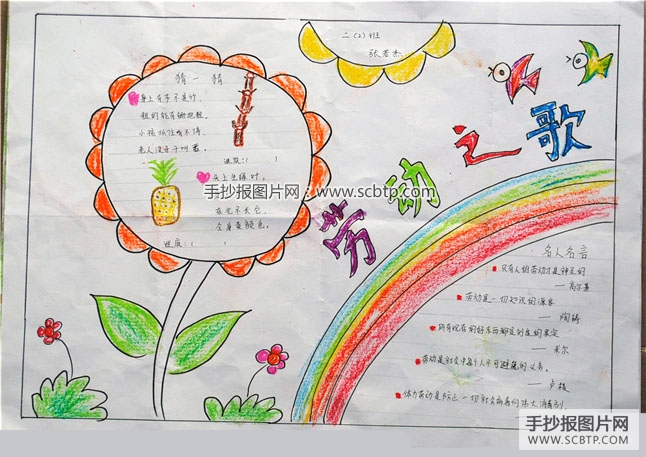 二(2)班
张若杰
猜一猜
身上有节不是竹,
粗的能有锄把粗,
小孩抓住啃不停,
老人没牙干叫着。
谜底:( )
头上生绿叶,
东北不长它,
全身黄颜色。
谜底:( )
手抄报图片网:www.scbtp.com
劳动之歌
名人名言
只有人的劳动才是神圣的
——高尔基
劳动是一切知识的源泉
——陶铸
所有现存的好东西都是创造的果实
——米尔
劳动是社会中每个人不可避免的义务。
——卢梭
体力劳动是防止一切社会病毒的伟大消毒剂。
手抄报图片网
WWW.SCBTP.COM